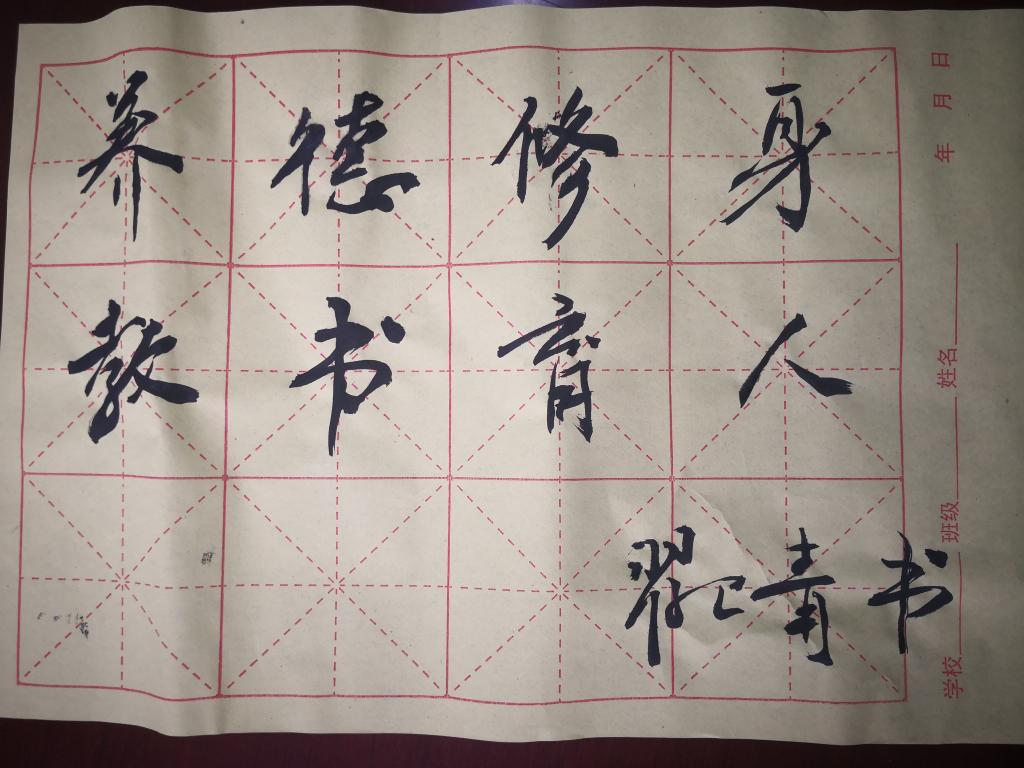 养德修身
教书育人
青书
学校 班级 姓名 年 月 日